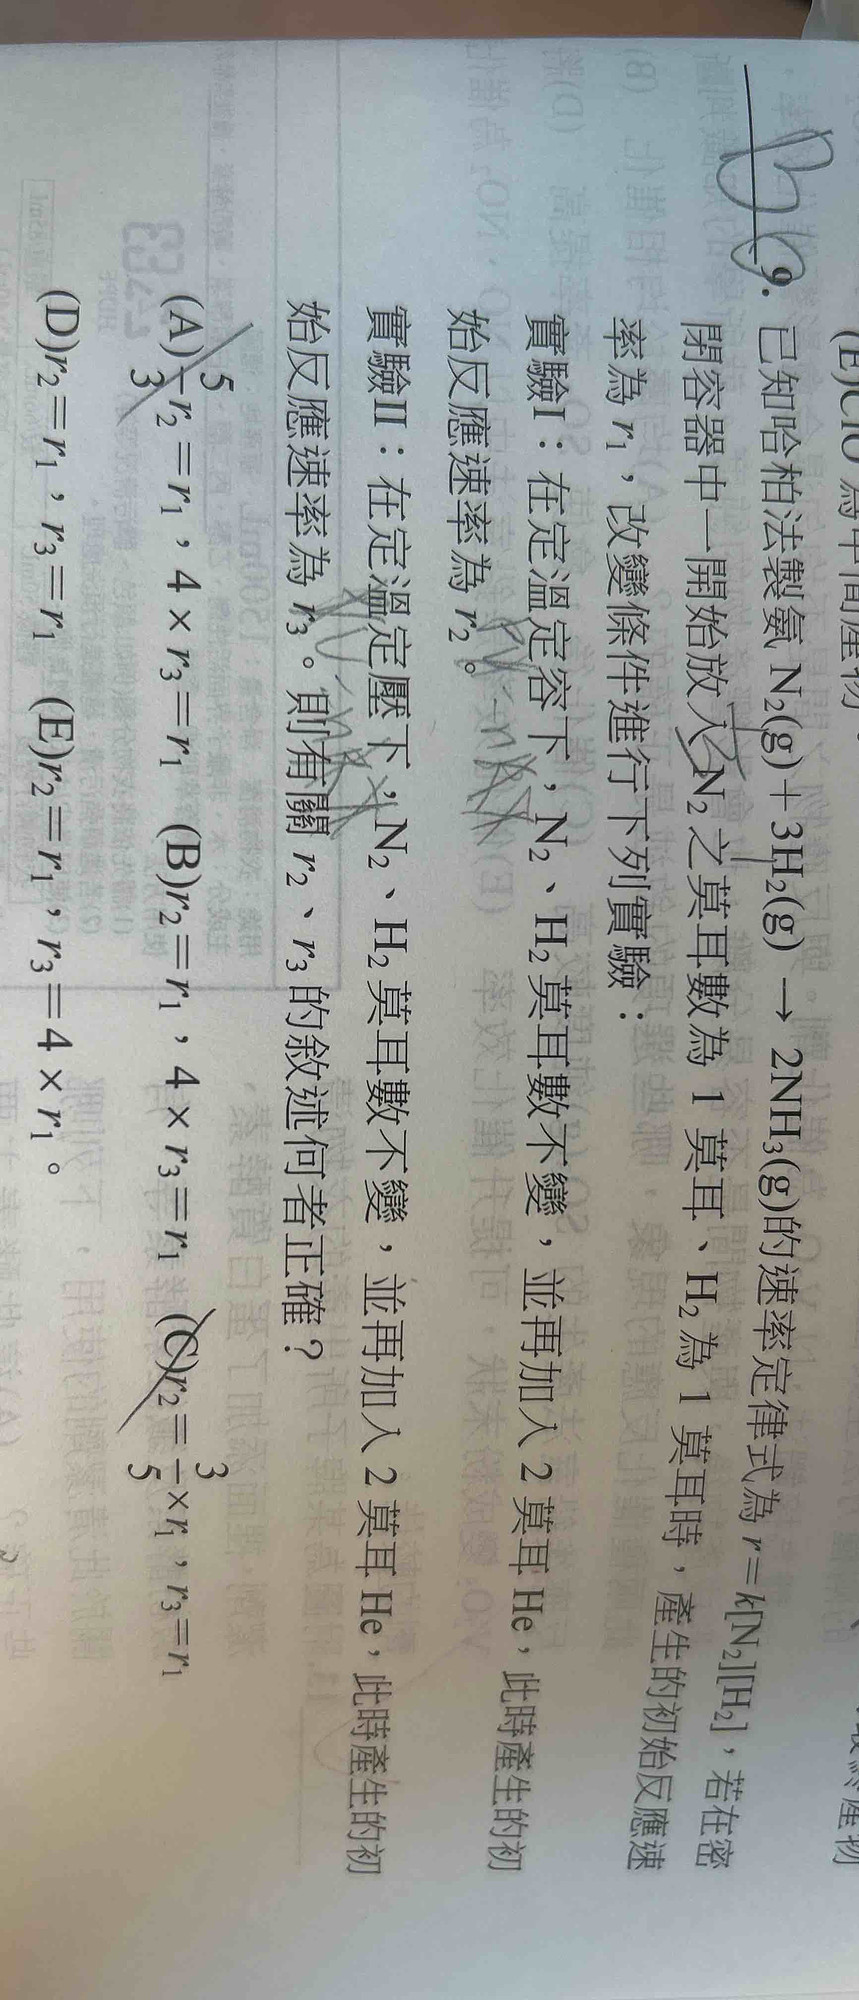 (E)ClO 為中間產物
9. 已知哈柏法製氨 N₂(g)＋3H₂(g) → 2NH₃(g)的速率定律式為 r＝k[N₂][H₂]，若在密
閉容器中一開始放入 N₂之莫耳數為 1 莫耳、H₂為 1 莫耳時，產生的初始反應速
率為 r₁，改變條件進行下列實驗：
實驗I：在定溫定容下，N₂、H₂莫耳數不變，並再加入 2 莫耳 He，此時產生的初
始反應速率為 r₂。
實驗II：在定溫定壓下，N₂、H₂莫耳數不變，並再加入 2 莫耳 He，此時產生的初
始反應速率為 r₃。則有關 r₂、r₃的敘述何者正確？
(A)5/3 r₂＝r₁，4 × r₃＝r₁ (B)r₂＝r₁，4 × r₃＝r₁ (C)r₂＝3/5×r₁，r₃＝r₁
(D)r₂＝r₁，r₃＝r₁ (E)r₂＝r₁，r₃＝4 × r₁。